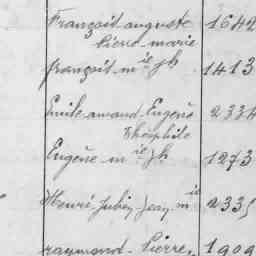 François auguste 1642
Pierre marie
françois m ie jh 1413
Emile amand Eugène 2334
Théophile
Eugène m ie jh 1273
Henri Jean m ie 2335
raymond Pierre, 1909